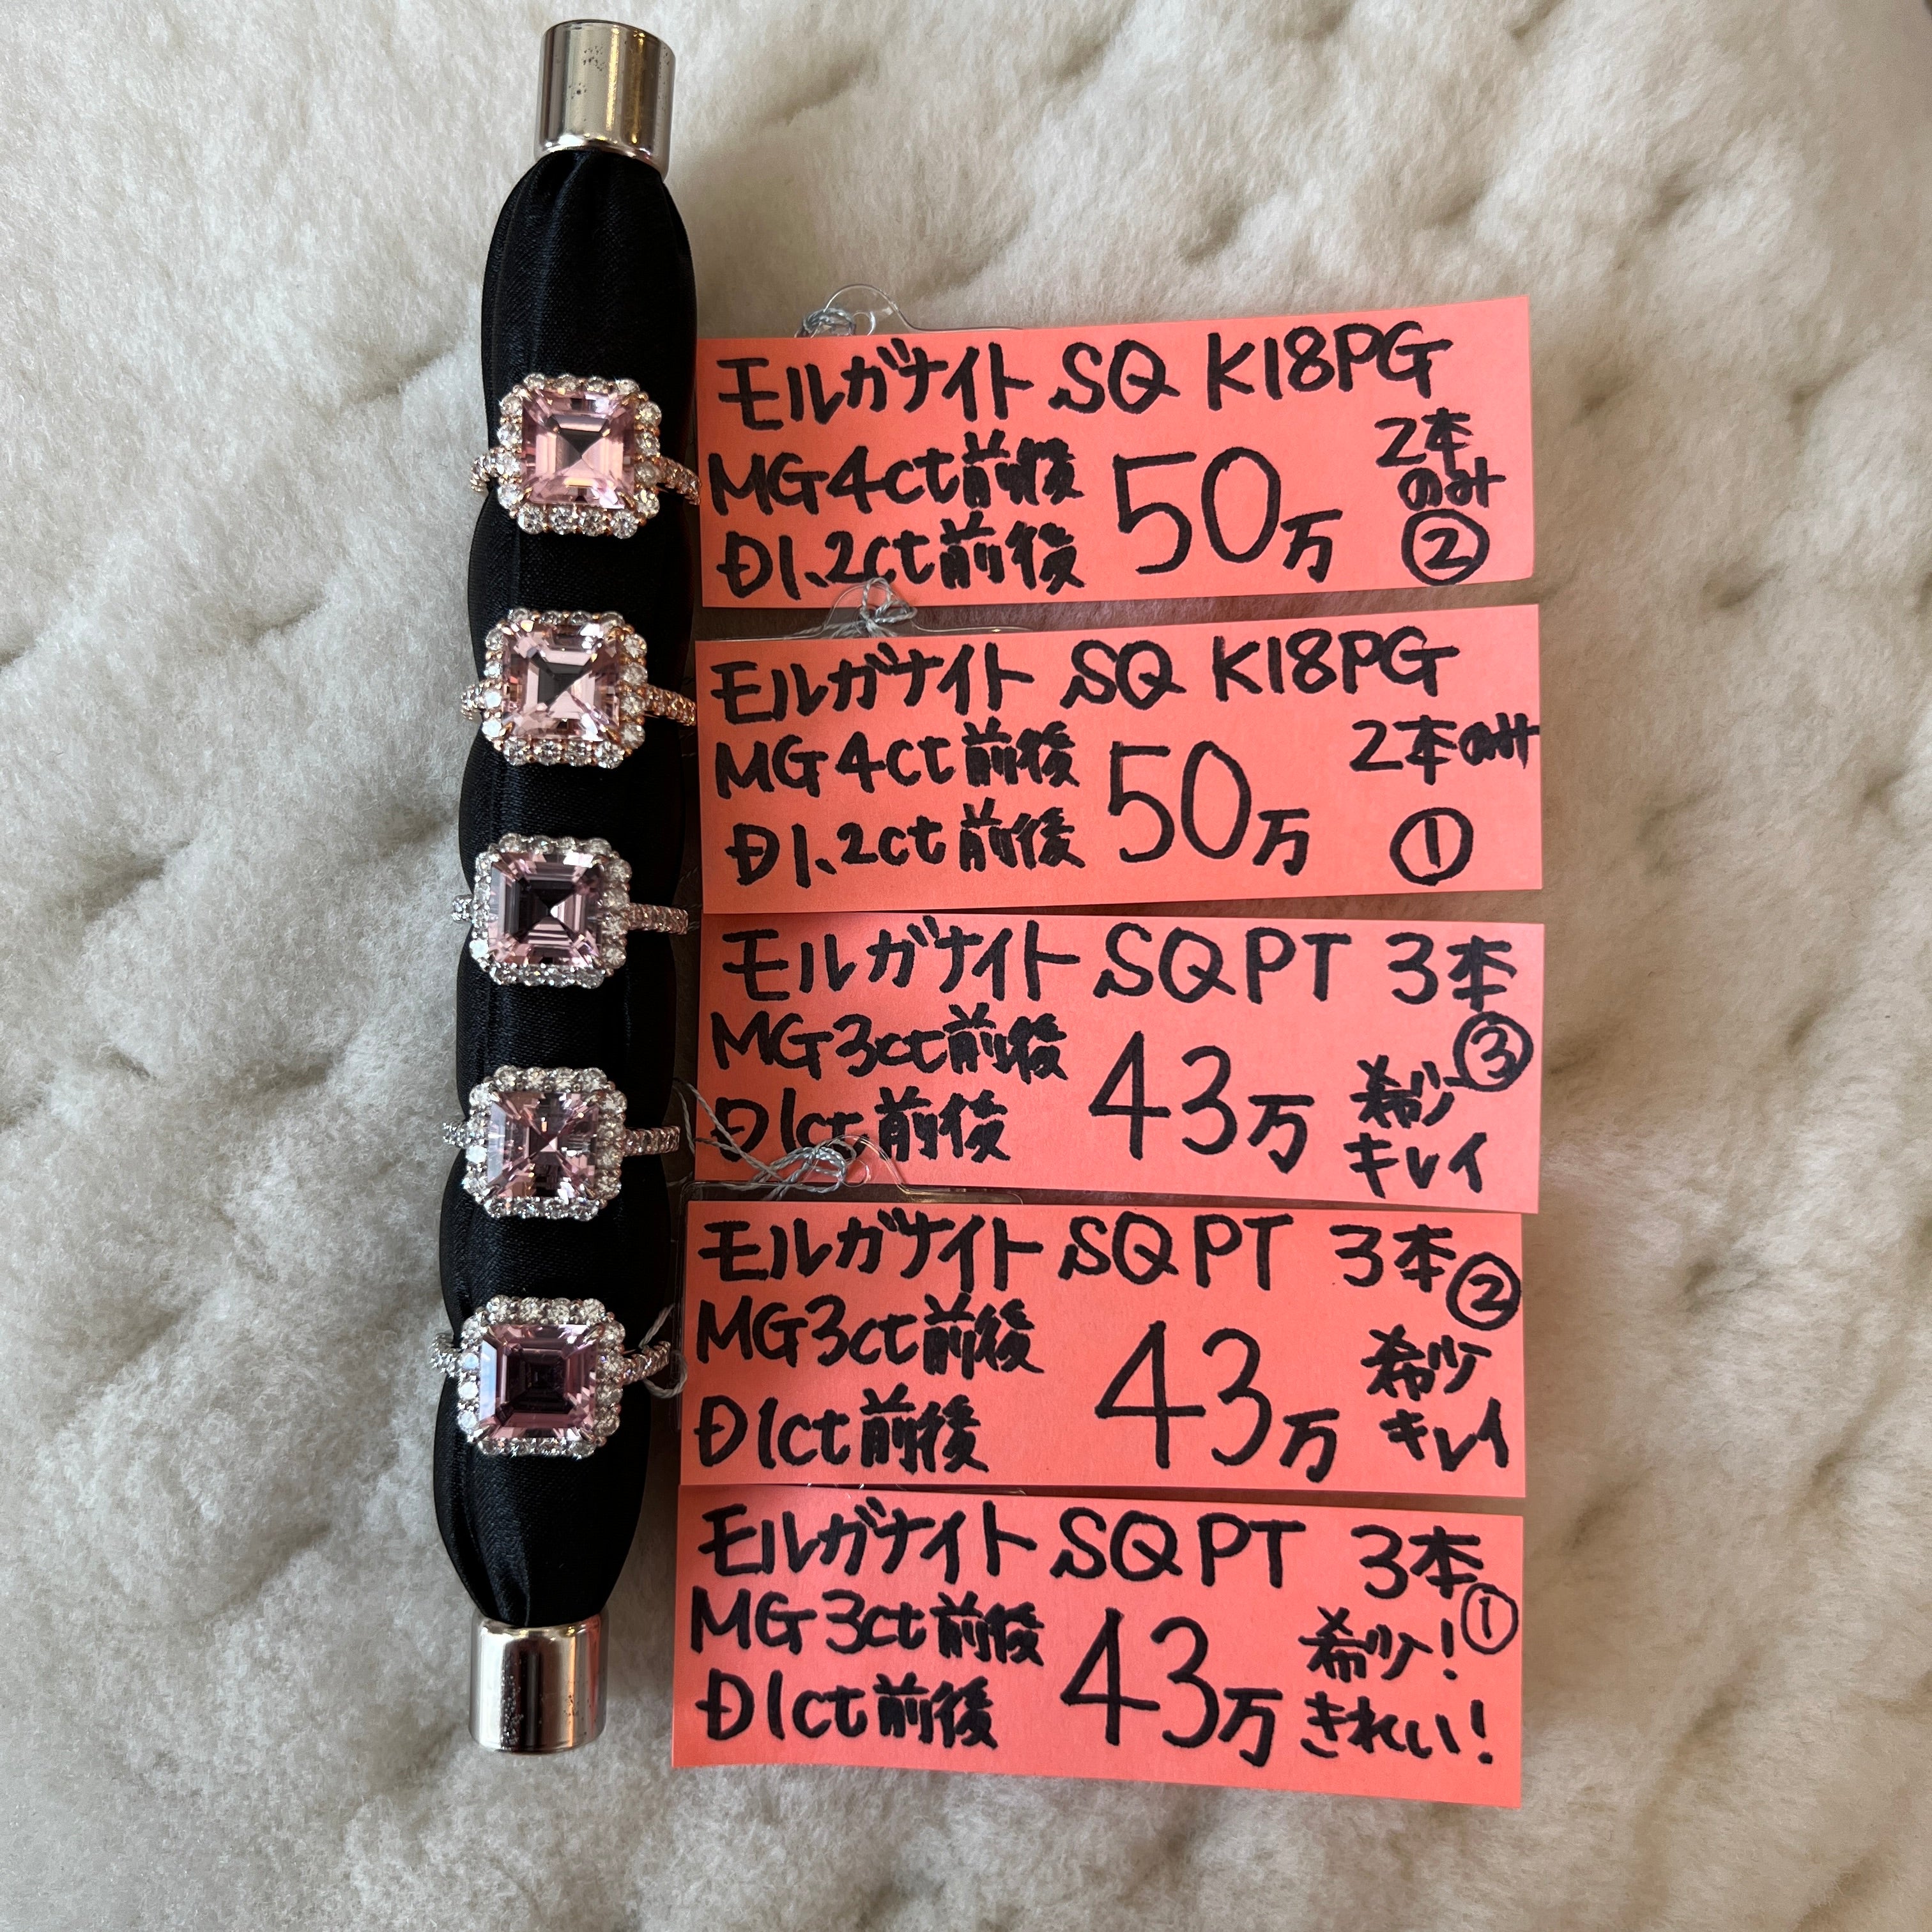 モルガナイト SQ K18PG
MG4ct前後 50万 2本
のみ
D1.2ct前後 ②
モルガナイト SQ K18PG
MG4ct前後 50万 2本のみ
D1.2ct前後 ①
モルガナイト SQ PT 3本
MG3ct前後 43万 ③
D1ct前後 希少
キレイ
モルガナイト SQ PT 3本
MG3ct前後 43万 ②
D1ct前後 希少
キレイ
モルガナイト SQ PT 3本
MG3ct前後 43万 ①
D1ct前後 希少!
きれい!